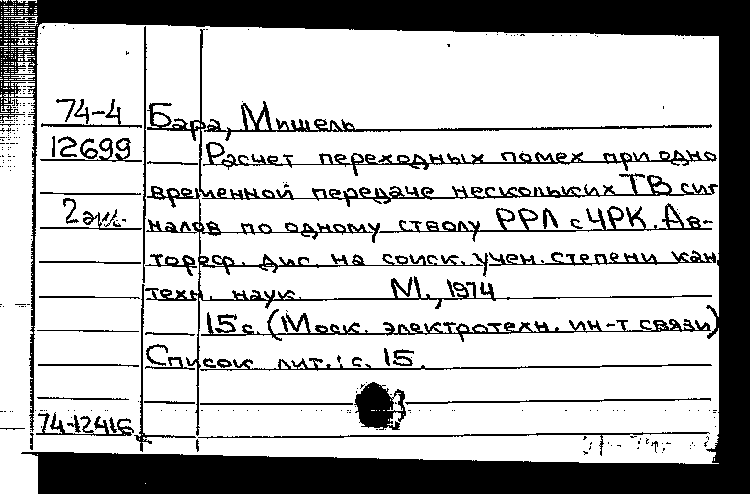 74-4
Бара, Мишель
12699
Расчет переходных помех при одно
временной передаче нескольких ТВ сиг
2 экз.
налов по одному стволу РРЛ с ЧРК. Ав-
тореф. дис. на соиск. учен. степени кан
техн. наук. М., 1974.
15с. (Моск. электротехн. ин-т связи)
Список лит.: с. 15.
74-12416